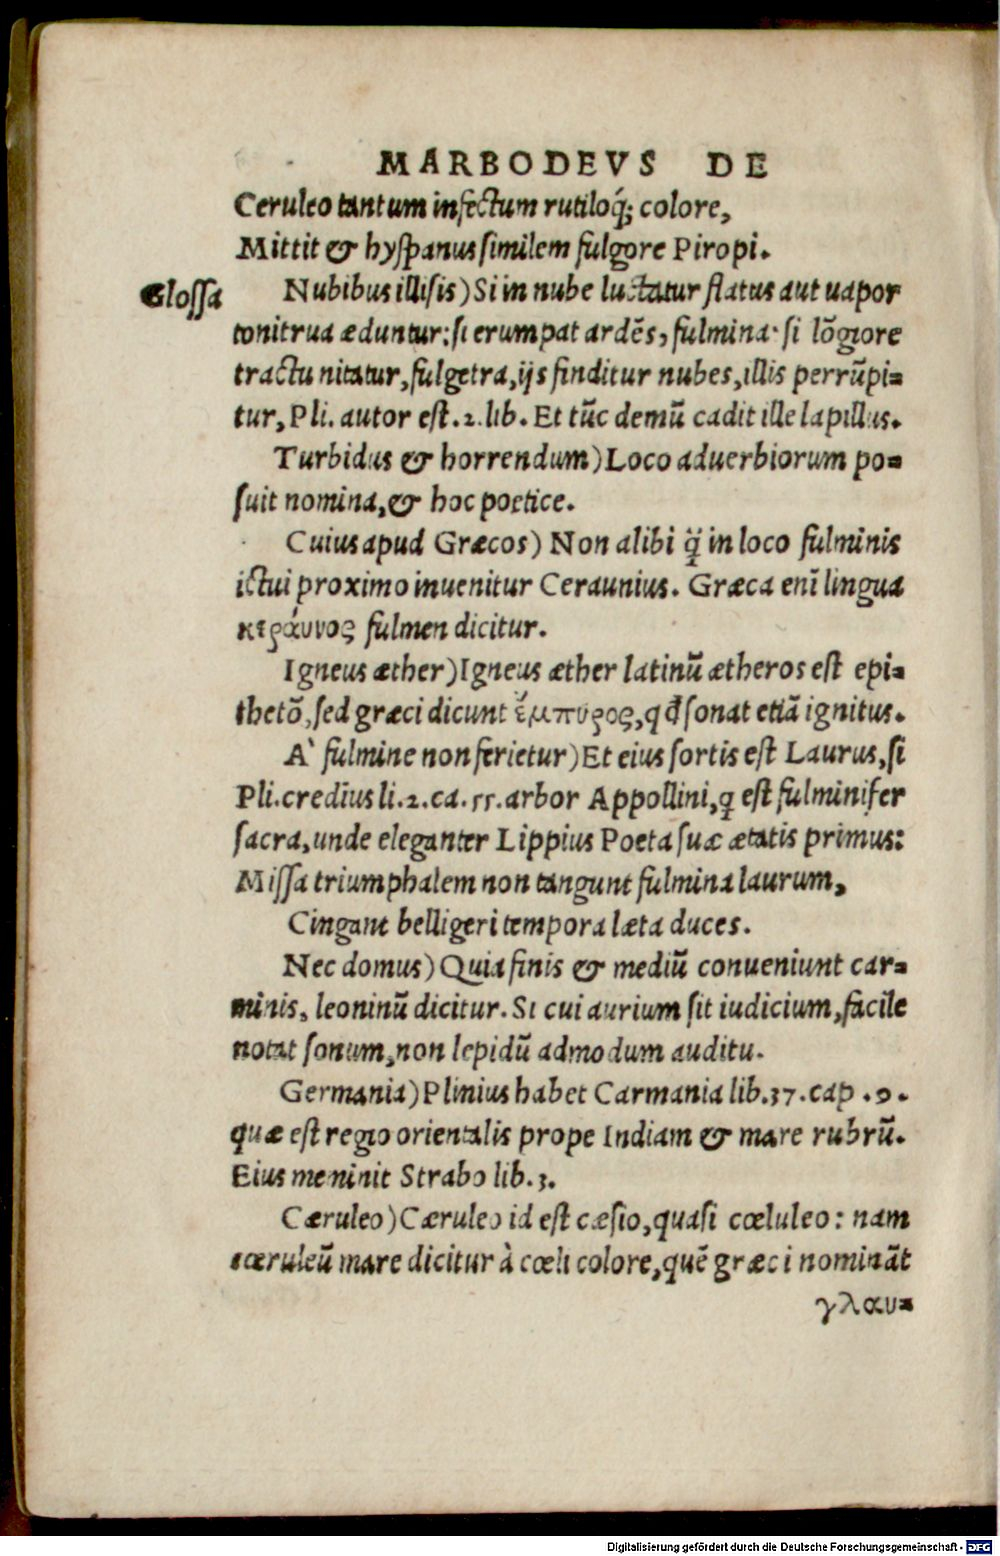 MARBODEVS DE
Ceruleo tantum infectum rutiloq́; colore,
Mittit & hyspanus similem fulgore Piropi.
Glossa
Nubibus illisis) Si in nube luctatur flatus aut uapor
tonitrua æduntur: si erumpat ardēs, fulmina· si lōgiore
tractu nitatur, fulgetra, ijs finditur nubes, illis perrūpi=
tur, Pli. autor est. 2. lib. Et tūc demū cadit ille lapillus.
Turbidus & horrendum) Loco aduerbiorum po=
suit nomina, & hoc poetice.
Cuius apud Græcos) Non alibi q̈̃ in loco fulminis
ictui proximo inuenitur Ceraunius. Græca enī lingua
κεράυνος fulmen dicitur.
Igneus æther) Igneus æther latinū ætheros est epi=
thetō, sed græci dicunt ἔμπυρος, qđ sonat etiā ignitus.
A` fulmine non ferietur) Et eius sortis est Laurus, si
Pli. credīus li. 2. ca. 55. arbor Appollini, q̨ est fulminifer
sacra, unde eleganter Lippius Poeta suæ ætatis primus:
Missa triumphalem non tangunt fulmina laurum,
Cingant belligeri tempora læta duces.
Nec domus) Quia finis & mediū conueniunt car=
minis, leoninū dicitur. Si cui aurium sit iudicium, facile
notat sonum, non lepidū admodum auditu.
Germania) Plinius habet Carmania lib. 37. cap. 9.
quæ est regio orientalis prope Indiam & mare rubrū.
Eius meninit Strabo lib. 3.
Cæruleo) Cæruleo id est cæsio, quasi cœluleo: nam
cœruleū mare dicitur à cœli colore, quē græci nomināt
γλαυ=
Digitalisierung gefördert durch die Deutsche Forschungsgemeinschaft - DFG